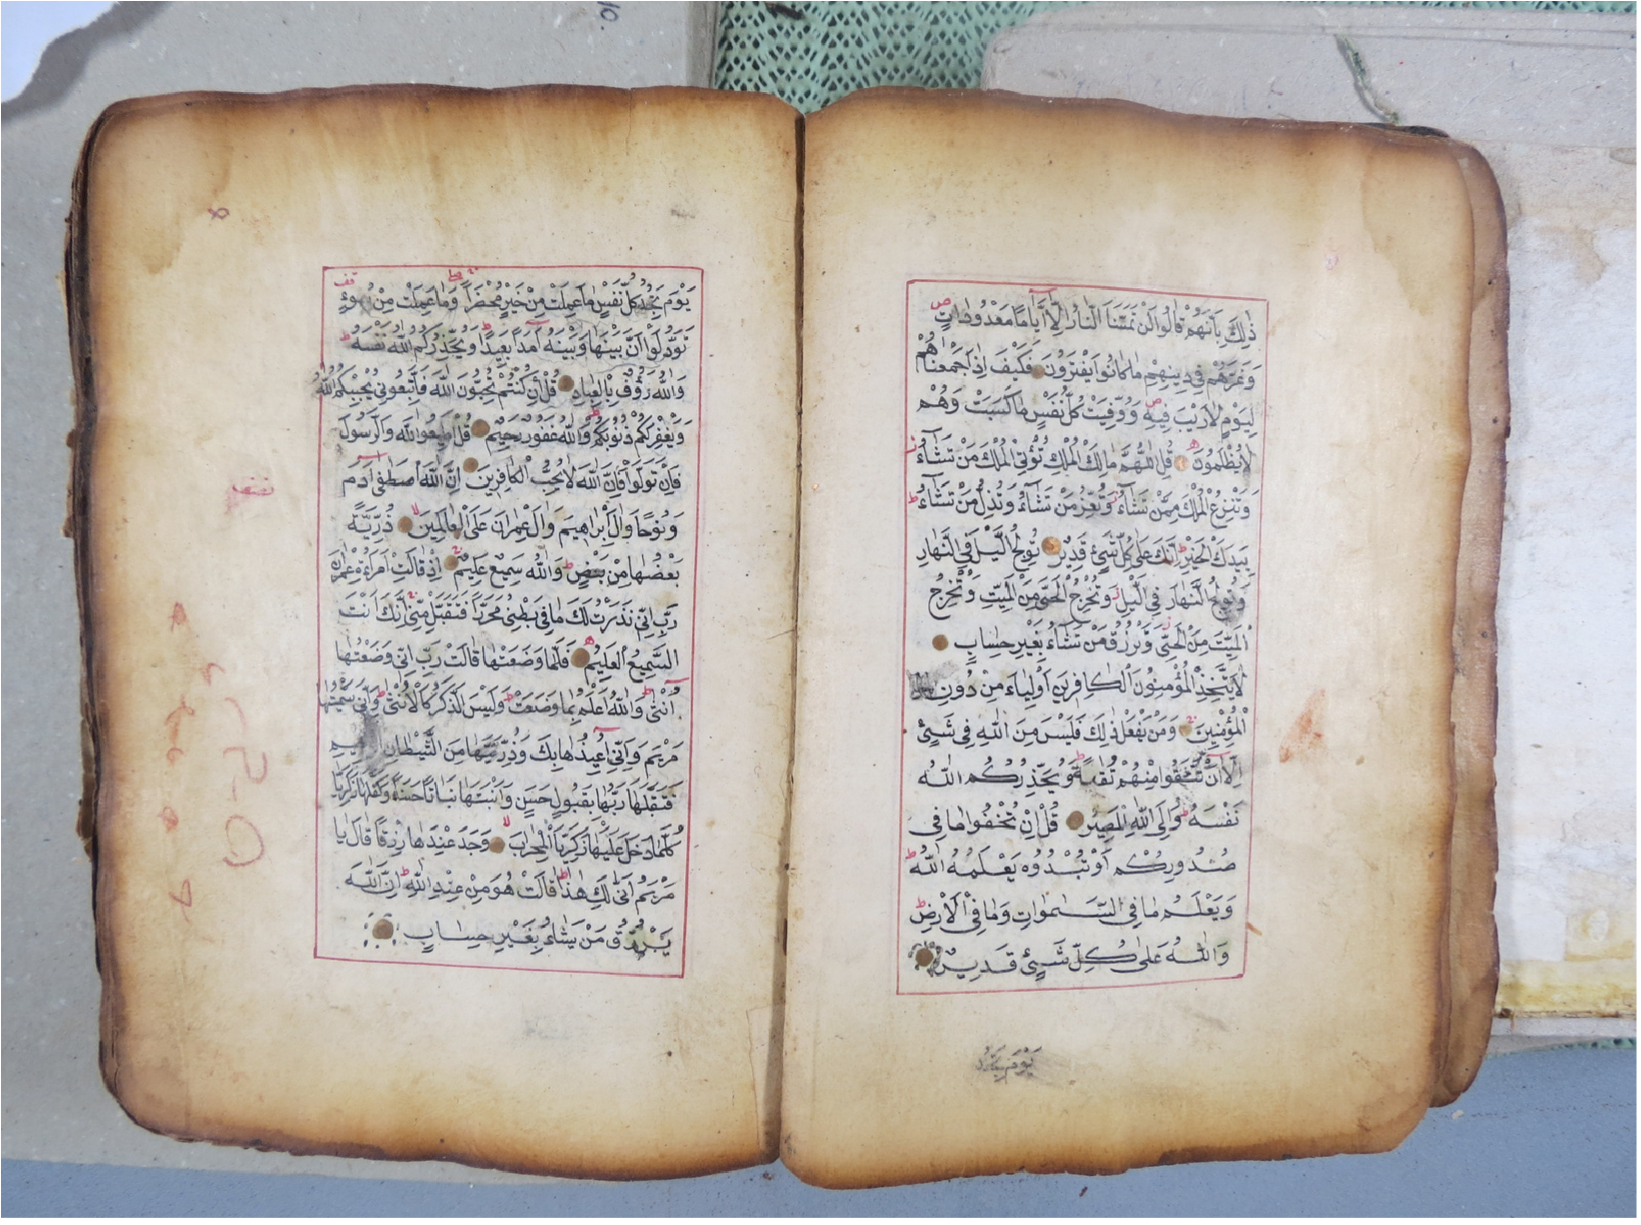 ذٰلِكَ بِاَنَّهُمْ قَالُوا لَنْ تَمَسَّنَا النَّارُ اِلَّٓا اَيَّامًا مَعْدُودَاتٍ
وَغَرَّهُمْ فِي دِينِهِمْ مَاكَانُوا يَفْتَرُونَ فَكَيْفَ اِذَا جَمَعْنَاهُمْ
لِيَوْمٍ لَارَيْبَ فِيهِ وَوُفِّيَتْ كُلُّ نَفْسٍ مَا كَسَبَتْ وَهُمْ
لَايُظْلَمُونَ قُلِ اللّٰهُمَّ مَالِكَ الْمُلْكِ تُؤْتِي الْمُلْكَ مَنْ تَشَٓاءُ
وَتَنْزِعُ الْمُلْكَ مِمَّنْ تَشَٓاءُ وَتُعِزُّ مَنْ تَشَٓاءُ وَتُذِلُّ مَنْ تَشَٓاءُ
بِيَدِكَ الْخَيْرُ اِنَّكَ عَلٰى كُلِّ شَيْئٍ قَدِيرٌ تُولِجُ الَّيْلَ فِي النَّهَارِ
وَتُولِجُ النَّهَارَ فِي الَّيْلِ وَتُخْرِجُ الْحَيَّ مِنَ الْمَيِّتِ وَتُخْرِجُ
الْمَيِّتَ مِنَ الْحَيِّ وَتَرْزُقُ مَنْ تَشَاءُ بِغَيْرِ حِسَابٍ
لَايَتَّخِذِ الْمُؤْمِنُونَ الْكَافِرِينَ اَوْلِيَاءَ مِنْ دُونِ
الْمُؤْمِنِينَ وَمَنْ يَفْعَلْ ذٰلِكَ فَلَيْسَ مِنَ اللّٰهِ فِي شَيْئٍ
اِلَّا اَنْ تَتَّقُوا مِنْهُمْ تُقٰيةً وَيُحَذِّرُكُمُ اللّٰهُ
نَفْسَهُ وَاِلَى اللّٰهِ الْمَصِيرُ قُلْ اِنْ تُخْفُوا مَا فِي
صُدُورِكُمْ اَوْ تُبْدُوهُ يَعْلَمْهُ اللّٰهُ
وَيَعْلَمُ مَا فِي السَّمٰوَاتِ وَمَا فِي الْاَرْضِ
وَاللّٰهُ عَلٰى كُلِّ شَيْئٍ قَدِيرٌ
يَوْمَ تَجِدُ
يَوْمَ تَجِدُ كُلُّ نَفْسٍ مَا عَمِلَتْ مِنْ خَيْرٍ مُحْضَرًا وَمَا عَمِلَتْ مِنْ سُوءٍ
تَوَدُّ لَوْ اَنَّ بَيْنَهَا وَبَيْنَهُ اَمَدًا بَعِيدًا وَيُحَذِّرُكُمُ اللّٰهُ نَفْسَهُ
وَاللّٰهُ رَؤُفٌ بِالْعِبَادِ قُلْ اِنْ كُنْتُمْ تُحِبُّونَ اللّٰهَ فَاتَّبِعُونِي يُحْبِبْكُمُ اللّٰهُ
وَيَغْفِرْلَكُمْ ذُنُوبَكُمْ وَاللّٰهُ غَفُورٌ رَحِيمٌ قُلْ اَطِيعُوا اللّٰهَ وَالرَّسُولَ
فَاِنْ تَوَلَّوْا فَاِنَّ اللّٰهَ لَايُحِبُّ الْكَافِرِينَ اِنَّ اللّٰهَ اصْطَفٰى اٰدَمَ
وَنُوحًا وَاٰلَ اِبْرَاهِيمَ وَاٰلَ عِمْرَانَ عَلَى الْعَالَمِينَ ذُرِّيَّةً
بَعْضُهَا مِنْ بَعْضٍ وَاللّٰهُ سَمِيعٌ عَلِيمٌ اِذْ قَالَتِ امْرَاَةُ عِمْرَانَ
رَبِّ اِنِّي نَذَرْتُ لَكَ مَا فِي بَطْنِي مُحَرَّرًا فَتَقَبَّلْ مِنِّي اِنَّكَ اَنْتَ
السَّمِيعُ الْعَلِيمُ فَلَمَّا وَضَعَتْهَا قَالَتْ رَبِّ اِنِّي وَضَعْتُهَا
اُنْثٰى وَاللّٰهُ اَعْلَمُ بِمَا وَضَعَتْ وَلَيْسَ الذَّكَرُ كَالْاُنْثٰى وَاِنِّي سَمَّيْتُهَا
مَرْيَمَ وَاِنِّي اُعِيذُهَا بِكَ وَذُرِّيَّتَهَا مِنَ الشَّيْطَانِ
فَتَقَبَّلَهَا رَبُّهَا بِقَبُولٍ حَسَنٍ وَاَنْبَتَهَا نَبَاتًا حَسَنًا وَكَفَّلَهَا زَكَرِيَّا
كُلَّمَا دَخَلَ عَلَيْهَا زَكَرِيَّا الْمِحْرَابَ وَجَدَ عِنْدَهَا رِزْقًا قَالَ يَا
مَرْيَمُ اَنّٰى لَكِ هٰذَا قَالَتْ هُوَ مِنْ عِنْدِ اللّٰهِ اِنَّ اللّٰهَ
يَرْزُقُ مَنْ يَشَاءُ بِغَيْرِ حِسَابٍ
نصف